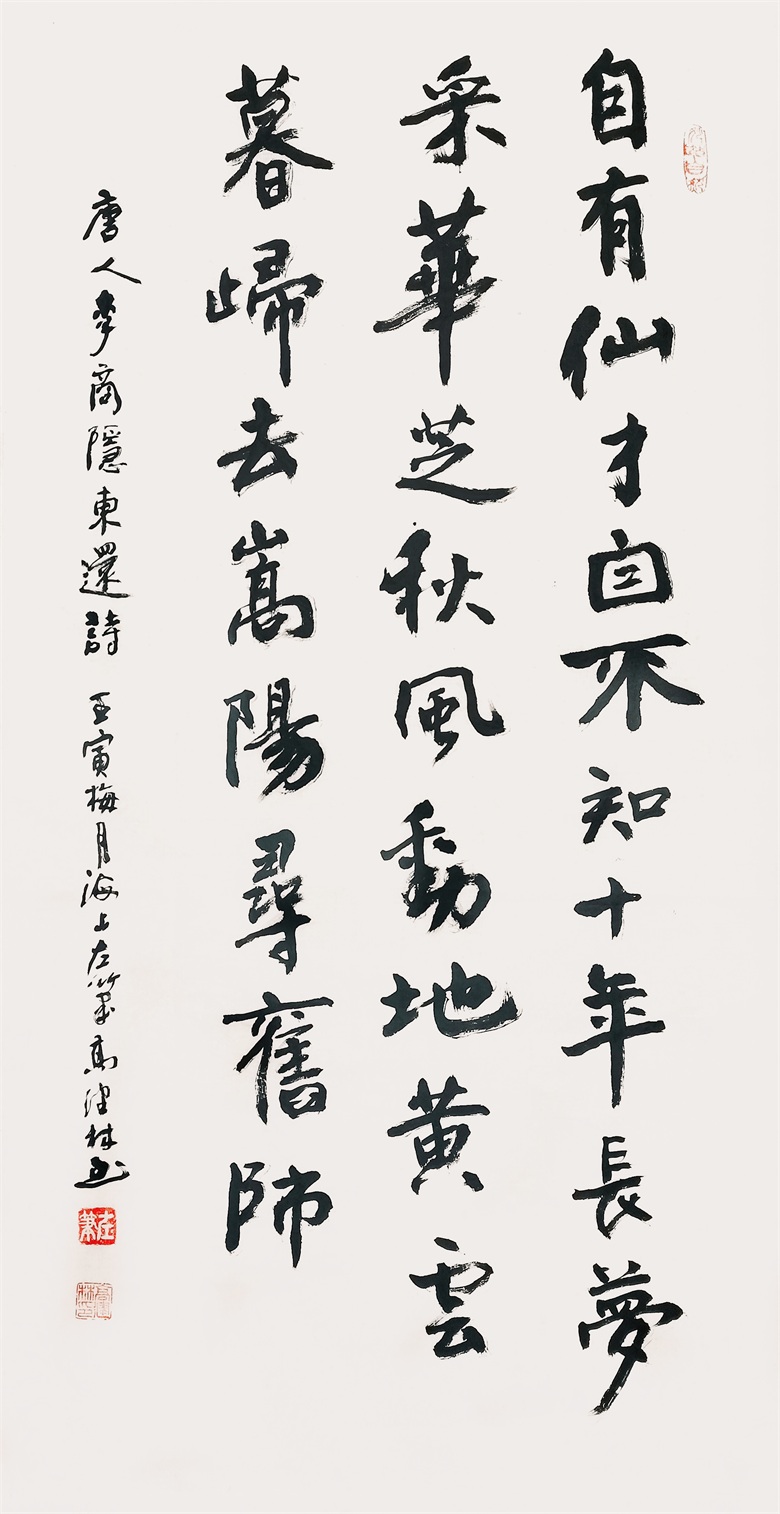 自有仙才自不知十年長夢
采華芝秋風動地黃雲
暮歸去嵩陽尋舊師
唐人李商隱東還詩 壬寅梅月海上左筆高 林書